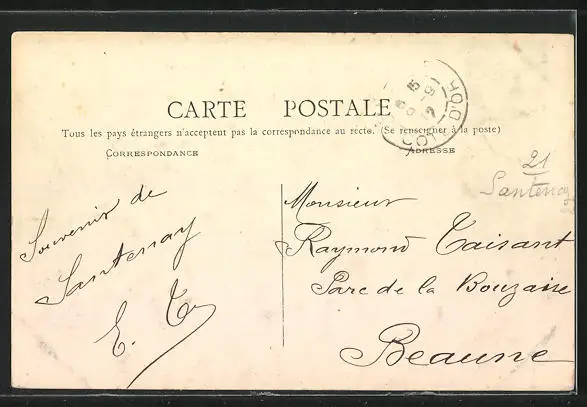 CARTE POSTALE
Tous les pays étrangers n'acceptent pas la correspondance au recto. (Se renseigner à la poste)
CORRESPONDANCE
ADRESSE
Souvenir de
Santenay
E. T
Monsieur
Raymond Taisant
Parc de la Bouzaise
Beaune
21
Santenay
COTE D'OR